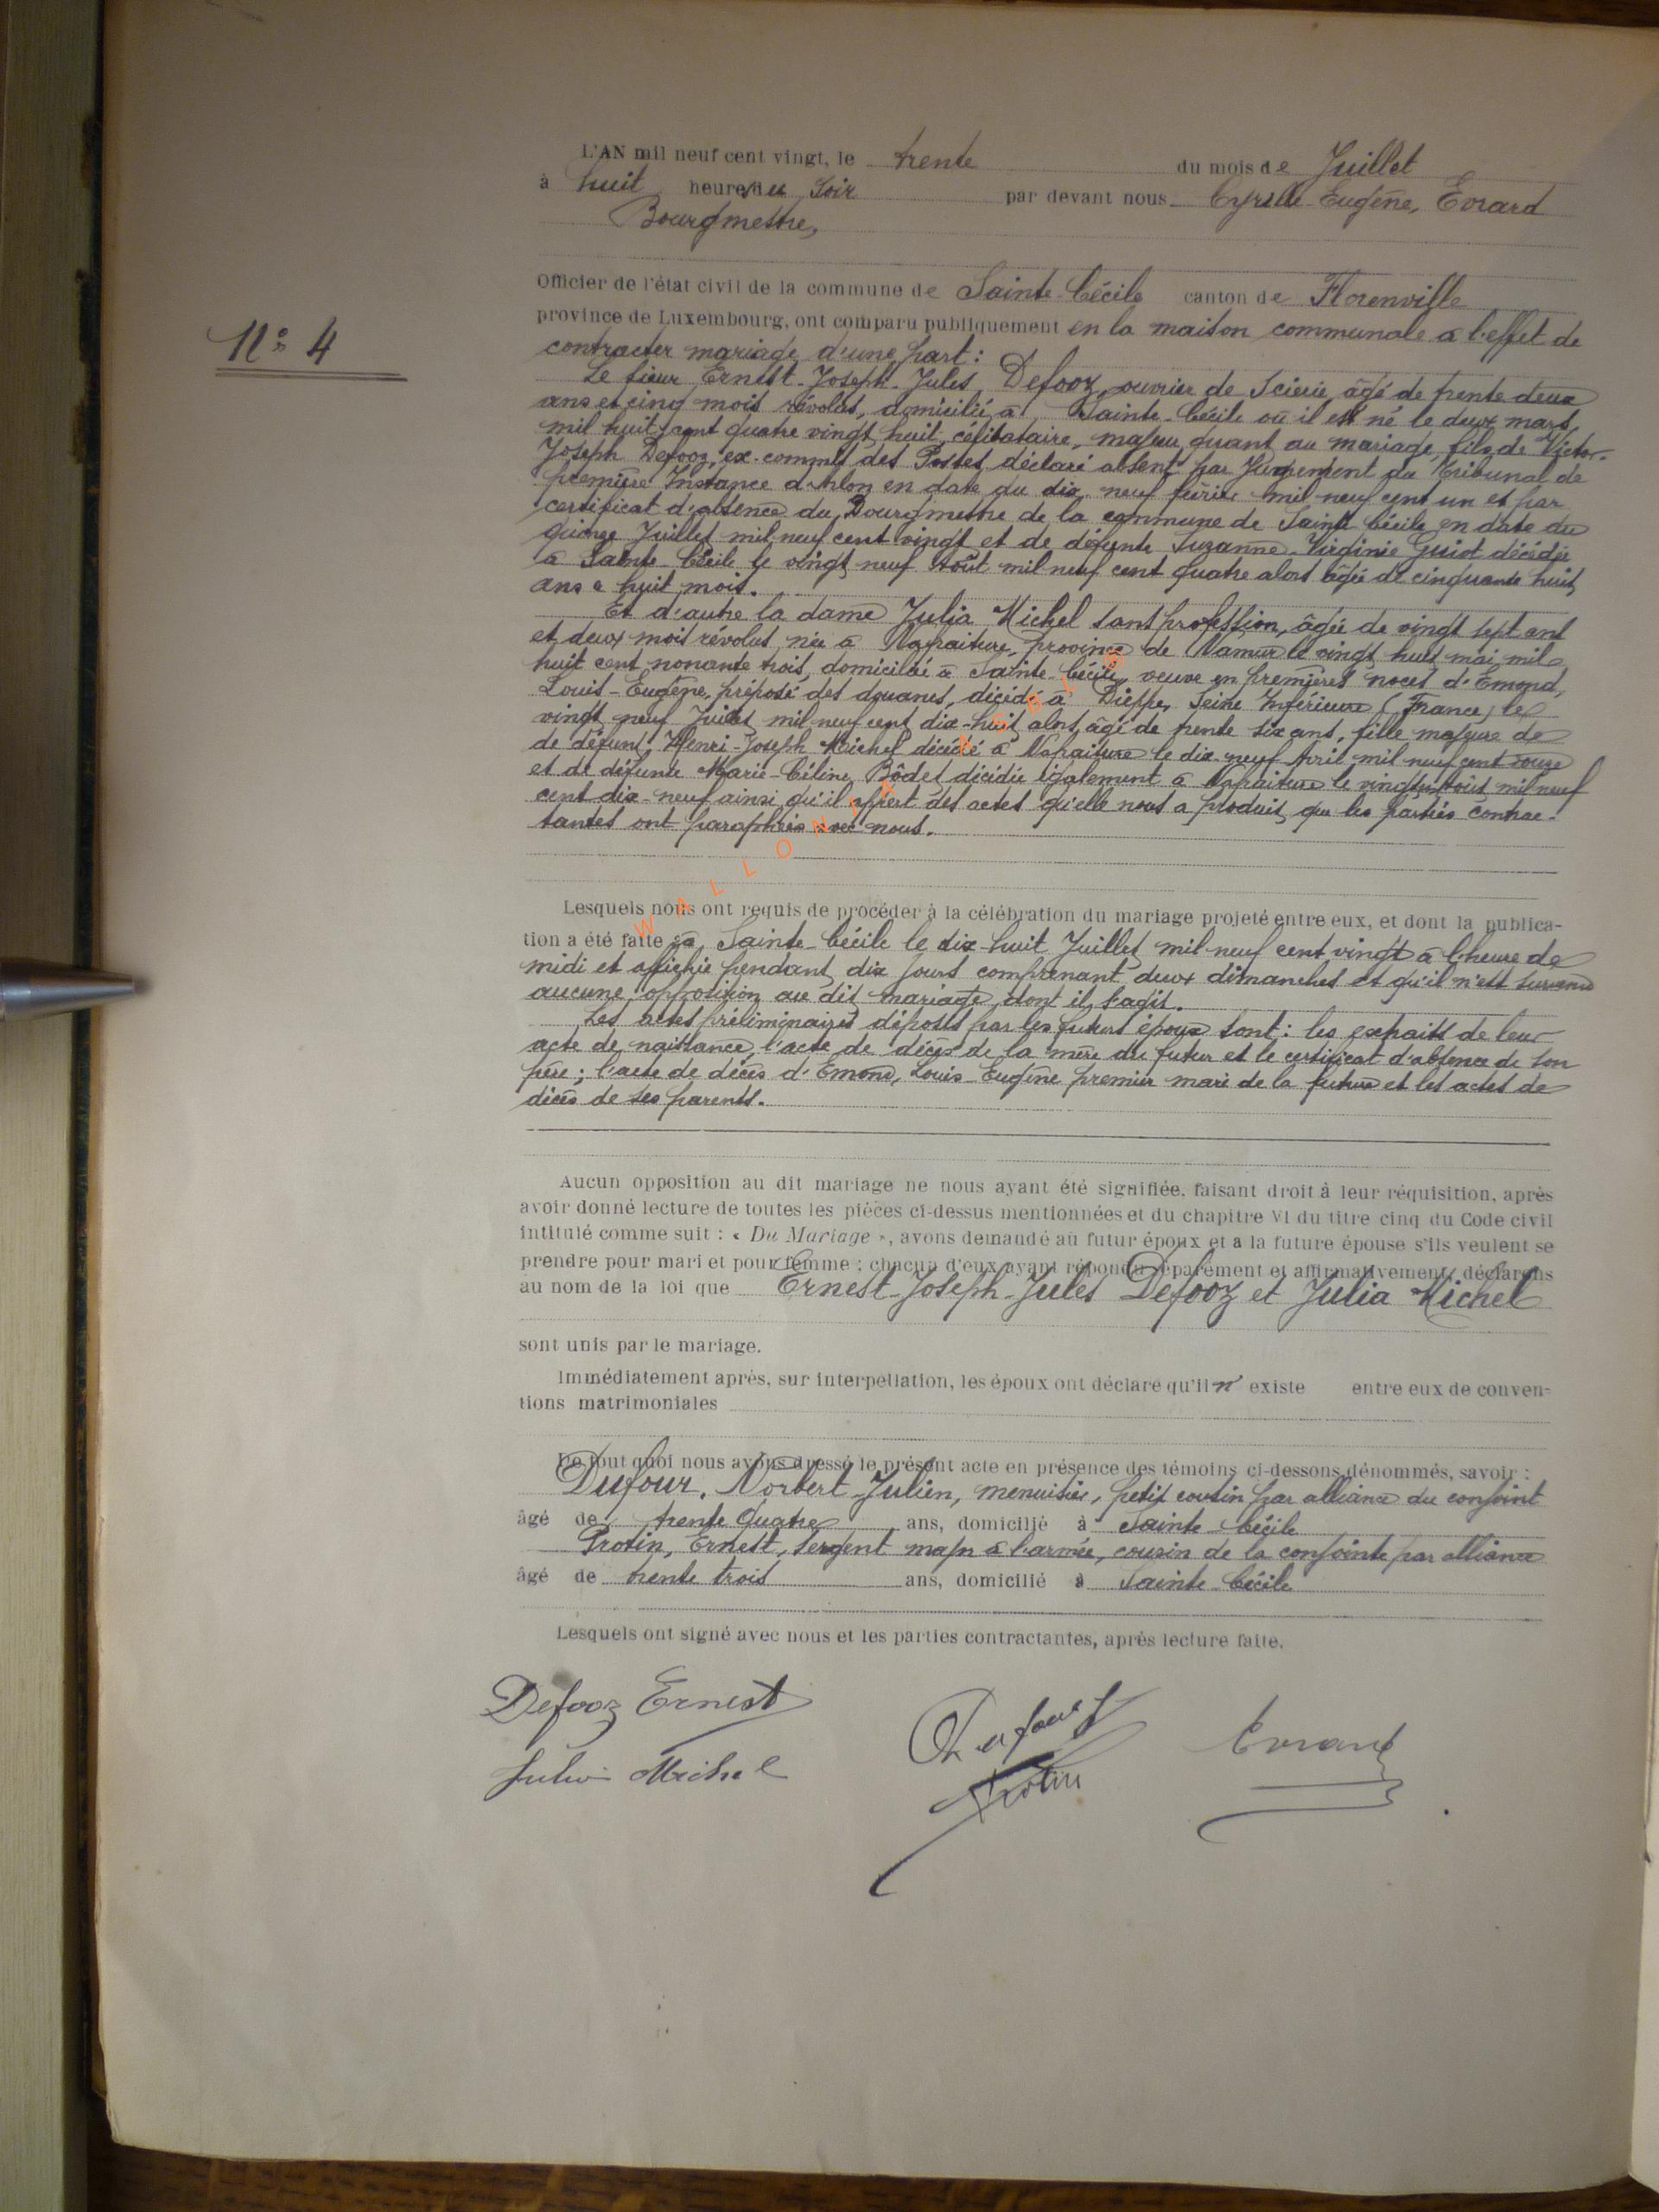 L'AN mil neuf cent vingt, le trente du mois de Juillet
à huit heures du Soir par devant nous Cyrille Eugène, Evrard
Bourgmestre,
Officier de l'état civil de la commune de Sainte-Cécile canton de Florenville
province de Luxembourg, ont comparu publiquement en la maison communale à l'effet de
N° 4
contracter mariage d'une part :
Le sieur Ernest-Joseph-Jules, Defooz, ouvrier de Scierie, âgé de trente deux
ans et cinq mois révolus, domicilié à Sainte-Cécile où il est né le deux mars,
mil huit cent quatre vingt huit, célibataire, majeur quant au mariage, fils de Victor-
Joseph Defooz, ex-commis des Postes, déclaré absent par Jugement du Tribunal de
première Instance d'Arlon en date du dix-neuf février mil neuf cent un et par
certificat d'absence du Bourgmestre de la commune de Sainte Cécile en date du
quinze Juillet mil neuf cent vingt et de défunte Suzanne-Virginie Guiot décédée
à Sainte-Cécile le vingt neuf Août mil neuf cent quatre alors âgée de cinquante huit
ans e huit mois.
Et d'autre la dame Julia Michel sans profession, âgée de vingt sept ans
et deux mois révolus née à Nafraiture, province de Namur le vingt huit mai mil
huit cent nonante trois, domiciliée à Sainte-Cécile, veuve en premières noces d'Emond,
Louis-Eugène, préposé des douanes, décédé à Dieppe, Seine Inférieure (France) le
vingt neuf Juillet mil neuf cent dix-huit alors âgé de trente six ans, fille majeure de
de défunt Henri-Joseph Michel décédé à Nafraiture le dix-neuf Avril mil neuf cent
et de défunte Marie-Céline Bôdet décédée également à Nafraiture le vingt Août mil neuf
cent dix-neuf ainsi qu'il appert des actes qu'elle nous a produit, que les parties contrac-
tantes ont paraphées avec nous.
Lesquels nous ont requis de procéder à la célébration du mariage projeté entre eux, et dont la publica-
tion a été faite à Sainte-Cécile le dix-huit Juillet mil neuf cent vingt à l'heure de
midi et affichée pendant dix jours comprenant deux dimanches et qu'il n'est survenu
aucune opposition au dit mariage dont il s'agit.
Les actes préliminaires déposés par les futurs époux sont : les extraits de leur
acte de naissance, l'acte de décès de la mère du futur et le certificat d'absence de son
père ; l'acte de décès d'Emond, Louis-Eugène premier mari de la future et les actes de
décès de ses parents.
Aucun opposition au dit mariage ne nous ayant été signifiée, faisant droit à leur réquisition, après
avoir donné lecture de toutes les pièces ci-dessus mentionnées et du chapitre VI du titre cinq du Code civil
intitulé comme suit : « Du Mariage », avons demandé au futur époux et a la future épouse s'ils veulent se
prendre pour mari et pour femme ; chacun d'eux ayant répondu séparément et affirmativement, déclarons
au nom de la loi que Ernest-Joseph-Jules Defooz et Julia Michel
sont unis par le mariage.
Immédiatement après, sur interpellation, les époux ont déclaré qu'il n' existe entre eux de conven-
tions matrimoniales
De tout quoi nous avons dressé le présent acte en présence des témoins ci-dessons dénommés, savoir :
Dufour, Norbert-Julien, menuisier, petit cousin par alliance du conjoint
âgé de trente quatre ans, domicilié à Sainte-Cécile
Protin, Ernest, Sergent major à l'armée, cousin de la conjointe par alliance
âgé de trente trois ans, domicilié à Sainte-Cécile
Lesquels ont signé avec nous et les parties contractantes, après lecture faite.
Defooz Ernest
Dufour
Evrard
Julia Michel
Protin